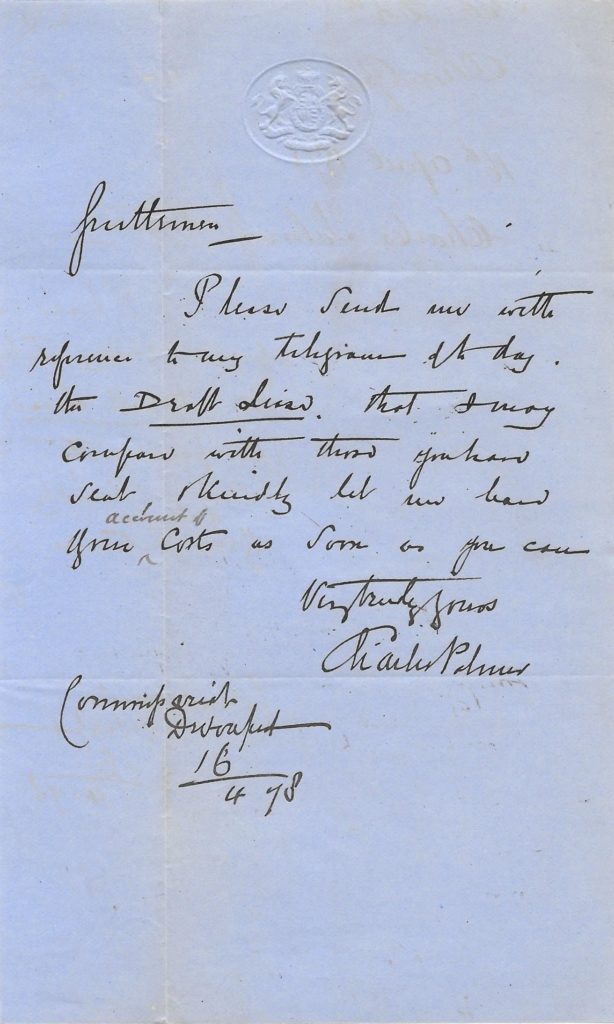 Gentlemen
Please send me with
reference to my telegram of to day.
the Draft Lease. that I may
compare with those you have
sent & kindly let me have
account of
your Costs as soon as you can
Very truly yours
Charles Palmer
Commissariat
Devonport
16
4 78
16 April 78
Charles Palmer